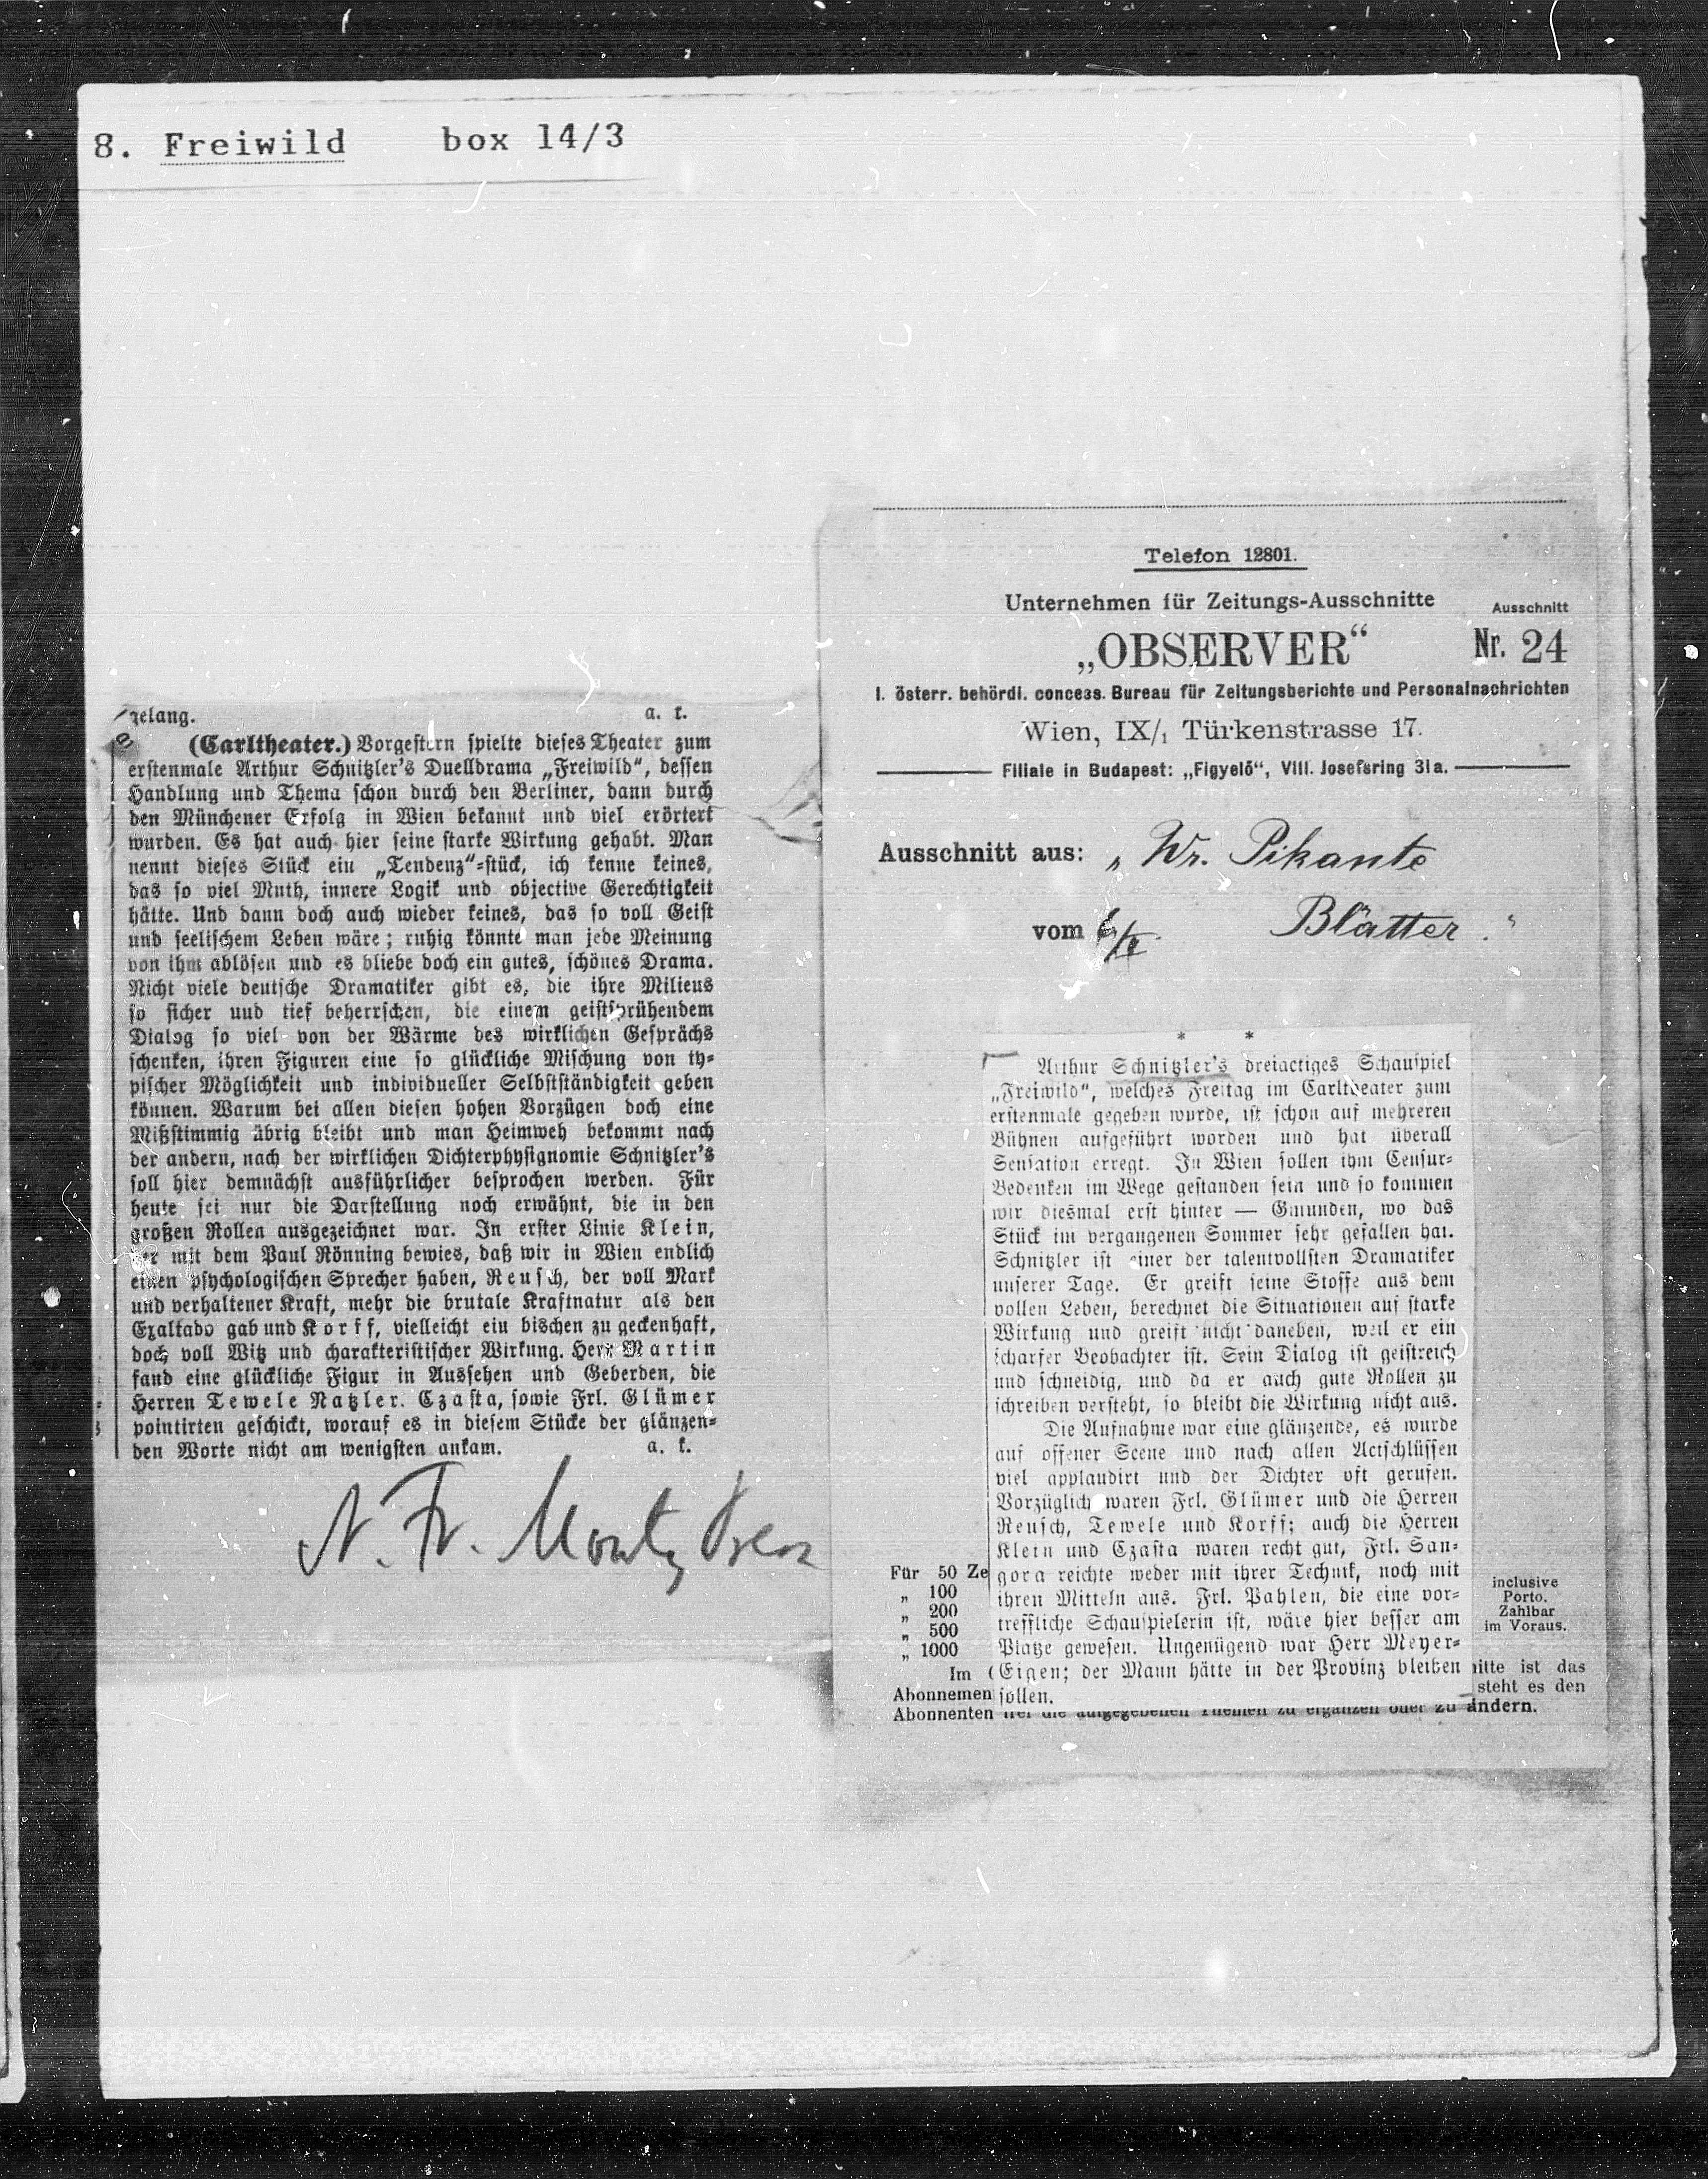 8. Freiwild box 14/3
gelang. a. k.
(Carltheater.) Vorgestern spielte dieses Theater zum
erstenmale Arthur Schnitzler's Duelldrama „Freiwild“, dessen
Handlung und Thema schon durch den Berliner, dann durch
den Münchener Erfolg in Wien bekannt und viel erörtert
wurden. Es hat auch hier seine starke Wirkung gehabt. Man
nennt dieses Stück ein „Tendenz“=stück, ich kenne keines,
das so viel Muth, innere Logik und objective Gerechtigkeit
hätte. Und dann doch auch wieder keines, das so voll Geist
und seelischem Leben wäre; ruhig könnte man jede Meinung
von ihm ablösen und es bliebe doch ein gutes, schönes Drama.
Nicht viele deutsche Dramatiker gibt es, die ihre Milieus
so sicher und tief beherrschen, die einem geistsprühendem
Dialog so viel von der Wärme des wirklichen Gesprächs
schenken, ihren Figuren eine so glückliche Mischung von ty=
pischer Möglichkeit und individueller Selbstständigkeit geben
können. Warum bei allen diesen hohen Vorzügen doch eine
Mißstimmig übrig bleibt und man Heimweh bekommt nach
der andern, nach der wirklichen Dichterphysignomie Schnitzler's
soll hier demnächst ausführlicher besprochen werden. Für
heute sei nur die Darstellung noch erwähnt, die in den
großen Rollen ausgezeichnet war. In erster Linie Klein,
der mit dem Paul Rönning bewies, daß wir in Wien endlich
einen psychologischen Sprecher haben, Reusch, der voll Mark
und verhaltener Kraft, mehr die brutale Kraftnatur als den
Exaltado gab und Korff, vielleicht ein bischen zu geckenhaft,
doch voll Witz und charakteristischer Wirkung. Herr Martin
fand eine glückliche Figur in Aussehen und Geberden, die
Herren Tewele Natzler. Czasta, sowie Frl. Glümer
pointirten geschickt, worauf es in diesem Stücke der glänzen=
den Worte nicht am wenigsten ankam. a. k.
N. Fr. Montg
Telefon 12801.
Unternehmen für Zeitungs-Ausschnitte Ausschnitt
„OBSERVER“ Nr. 24
I. österr. behördl. concess. Bureau für Zeitungsberichte und Personalnachrichten
Wien, IX/1 Türkenstrasse 17.
Filiale in Budapest: „Figyelő“, VIII. Josefsring 31a.
Ausschnitt aus: „Wr. Pikante
vom Blätter.“
* *
Arthur Schnitzler's dreiactiges Schauspiel
„Freiwild“, welches Freitag im Carltheater zum
erstenmale gegeben wurde, ist schon auf mehreren
Bühnen aufgeführt worden und hat überall
Sensation erregt. In Wien sollen ihm Censur=
Bedenken im Wege gestanden sein und so kommen
wir diesmal erst hinter — Gmunden, wo das
Stück im vergangenen Sommer sehr gefallen hat.
Schnitzler ist einer der talentvollsten Dramatiker
unserer Tage. Er greift seine Stoffe aus dem
vollen Leben, berechnet die Situationen auf starke
Wirkung und greift nicht daneben, weil er ein
scharfer Beobachter ist. Sein Dialog ist geistreich
und schneidig, und da er auch gute Rollen zu
schreiben versteht, so bleibt die Wirkung nicht aus.
Die Aufnahme war eine glänzende, es wurde
auf offener Scene und nach allen Actschlüssen
viel applaudirt und der Dichter oft gerufen.
Vorzüglich waren Frl. Glümer und die Herren
Reusch, Tewele und Korff; auch die Herren
Klein und Czasta waren recht gut, Frl. San=
gora reichte weder mit ihrer Technik, noch mit
ihren Mitteln aus. Frl. Pahlen, die eine vor=
treffliche Schauspielerin ist, wäre hier besser am
Platze gewesen. Ungenügend war Herr Meyer=
Eigen; der Mann hätte in der Provinz bleiben
sollen.
Für 50 Ze
„ 100
„ 200
„ 500
„ 1000
inclusive
Porto.
Zahlbar
im Voraus.
Im nitte ist das
Abonnemen steht es den
Abonnenten frei die aufgegebenen Themen zu ergänzen oder zu ändern.